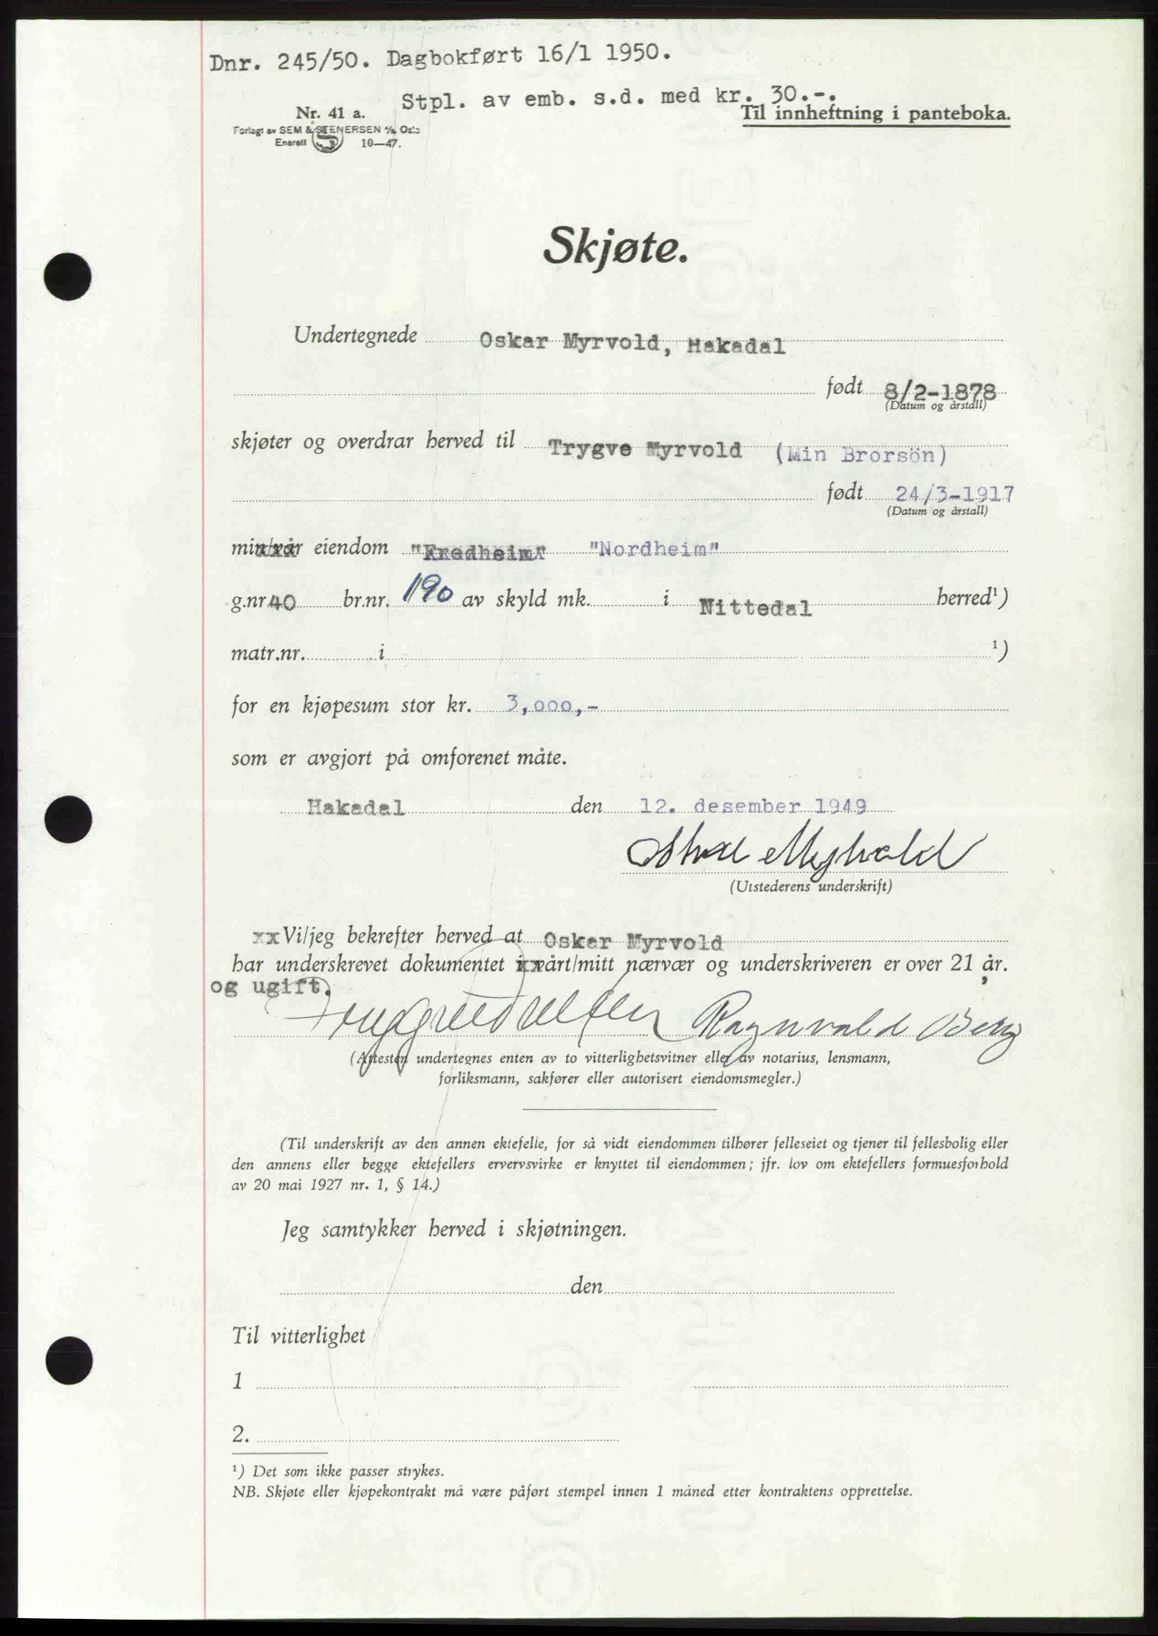 Dnr. 245/50. Dagbokført 16/1 1950.
Stpl. av emb. s.d. med kr. 30.-.
Nr. 41 a.
Til innheftning i panteboka.
Forlagt av SEM & STENERSEN A/S, Oslo
Enerett 10—47.
Skjøte.
Undertegnede Oskar Myrvold, Hakadal
født 8/2-1878
(Datum og årstall)
skjøter og overdrar herved til Trygve Myrvold (Min Brorsön)
født 24/3-1917
(Datum og årstall)
min/vår eiendom "Fredheim" "Nordheim"
g.nr. 40 br.nr. 190 av skyld mk. i Nittedal herred¹)
matr.nr. i ¹)
for en kjøpesum stor kr. 3,000,-
som er avgjort på omforenet måte.
Hakadal den 12. desember 1949
Oskar Myrvold
(Utstederens underskrift)
xxVi/jeg bekrefter herved at Oskar Myrvold
har underskrevet dokumentet i vårt/mitt nærvær og underskriveren er over 21 år.
og ugift,
Ragnvald Berg
(Attesten undertegnes enten av to vitterlighetsvitner eller av notarius, lensmann,
forliksmann, sakfører eller autorisert eiendomsmegler.)
(Til underskrift av den annen ektefelle, for så vidt eiendommen tilhører felleseiet og tjener til fellesbolig eller
den annens eller begge ektefellers ervervsvirke er knyttet til eiendommen; jfr. lov om ektefellers formuesforhold
av 20 mai 1927 nr. 1, § 14.)
Jeg samtykker herved i skjøtningen.
den
Til vitterlighet
1
2.
¹) Det som ikke passer strykes.
NB. Skjøte eller kjøpekontrakt må være påført stempel innen 1 måned etter kontraktens opprettelse.